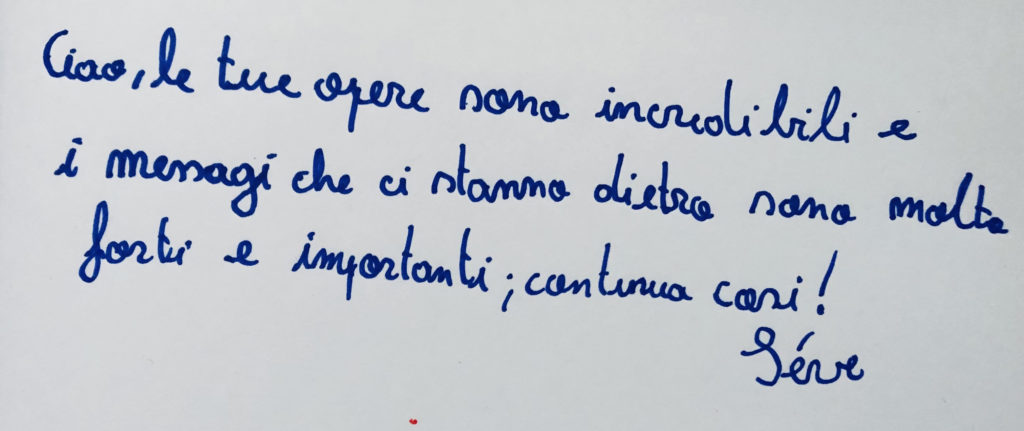 Ciao, le tue opere sono incredibili e
i messagi che ci stanno dietro sono molto
forti e importanti; continua cosi!
Séve